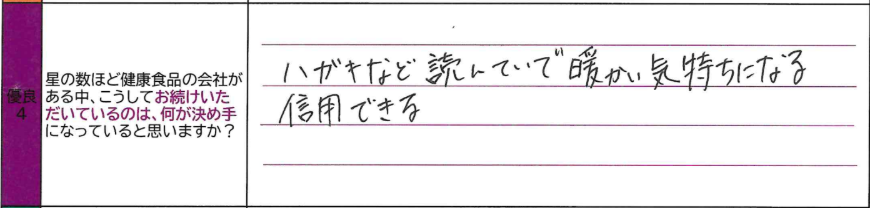 優良
4
星の数ほど健康食品の会社が
ある中、こうしてお続けいた
だいているのは、何が決め手
になっていると思いますか？
ハガキなど読んでいて暖かい気持ちになる
信用できる